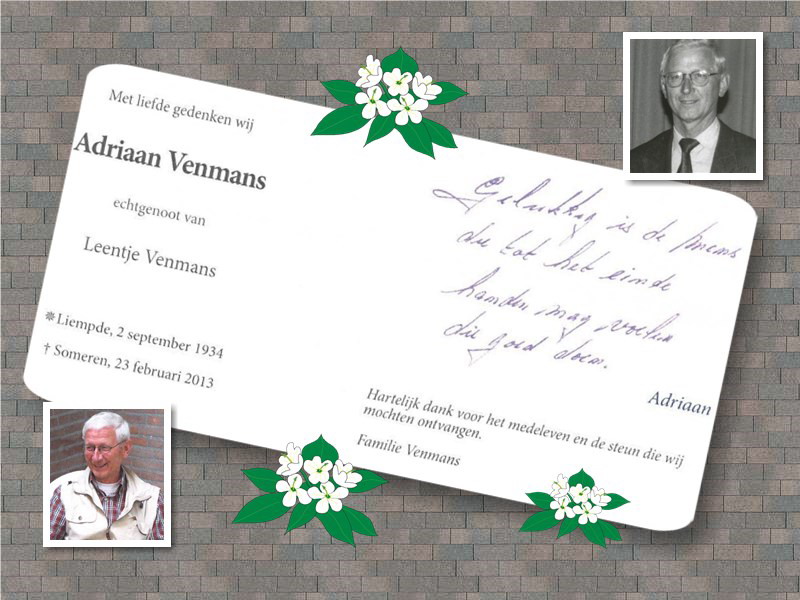 Met liefde gedenken wij
Adriaan Venmans
echtgenoot van
Leentje Venmans
✵ Liempde, 2 september 1934
† Someren, 23 februari 2013
Gelukkig is de mens
die tot het einde
handen mag voelen
die goed doen.
Adriaan
Hartelijk dank voor het medeleven en de steun die wij
mochten ontvangen.
Familie Venmans